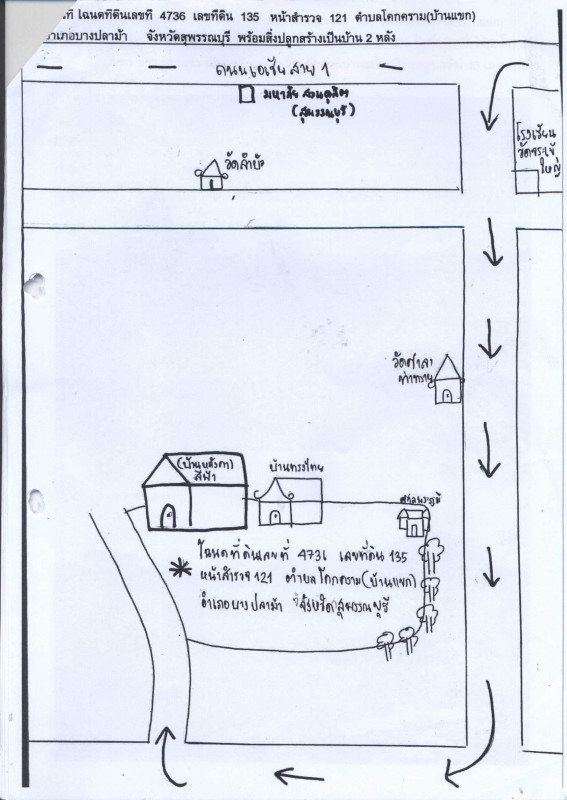 ที่ โฉนดที่ดินเลขที่ 4736 เลขที่ดิน 135 หน้าสำรวจ 121 ตำบลโคกคราม(บ้านแขก)
อำเภอบางปลาม้า จังหวัดสุพรรณบุรี พร้อมสิ่งปลูกสร้างเป็นบ้าน 2 หลัง
ถนนเอเซีย สาย 1
มหาลัย สวนดุสิต
(สุพรรณบุรี)
โรงเรียน
วัดสระเข้
ใหญ่
วัดลำบัว
วัดศาลา
ท่าทราย
(บ้านหลังคา)
สีฟ้า
บ้านทรงไทย
ศาลพระภูมิ
* โฉนดที่ดินเลขที่ 4736 เลขที่ดิน 135
หน้าสำรวจ 121 ตำบลโคกคราม(บ้านแขก)
อำเภอบางปลาม้า จังหวัดสุพรรณบุรี